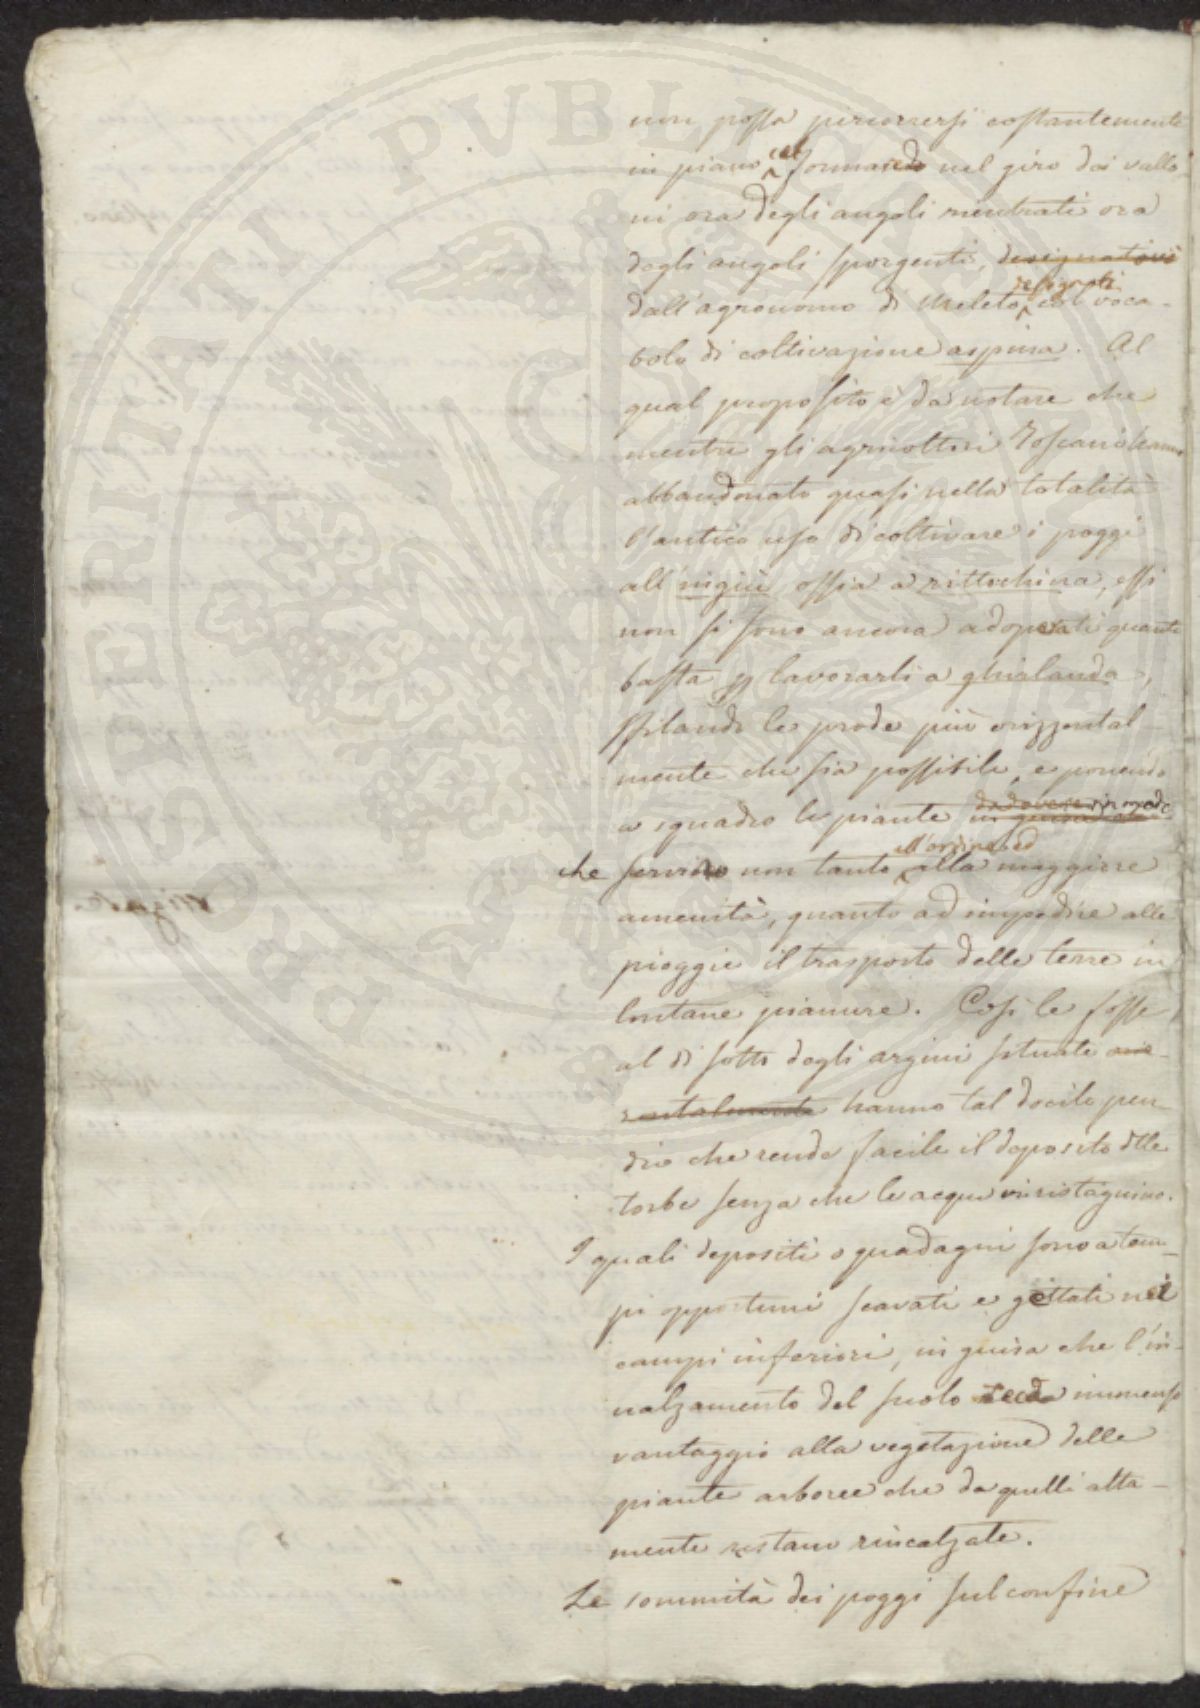 non possa percorrersi costantemente
in piano, col formare nel giro dei vallo-
ni ora degli angoli rientrati ora
degli angoli sporgenti, designatovi
designati
dall'agronomo di Meleto col voca-
bolo di coltivazione a spina. Al
qual proposito è da notare che
mentre gli agricoltori Toscani hanno
abbandonato quasi nella totalità
l'antico uso di coltivare i poggi
all'ingiù ossia a rittochina, essi
non si sono ancora adoperati quanto
basta p lavorarli a ghirlanda,
filando le prode più orizzontal-
mente che sia possibile, e ponendo
da dovere in modo
a squadro le piante in guisa
all'ordine ed
che servino non tanto alla maggiore
amenità, quanto ad impedire alle
pioggie il trasporto delle terre in
lontane pianure. Così le fosse
al di sotto degli argini situate oriz-
zontalmente hanno tal docile pen-
dio che rende facile il deposito dlle
torbe senza che le acque vi ristagnino.
I quali depositi o guadagni sono a tem-
pi opportuni scavati e gettati nei
campi inferiori, in guisa che l'in-
nalzamento del suolo reca immenso
vantaggio alla vegetazione delle
piante arboree che da quelli alta-
mente restano rincalzate.
Le sommità dei poggi sul confine
PROSPERITATI PVBLICAE